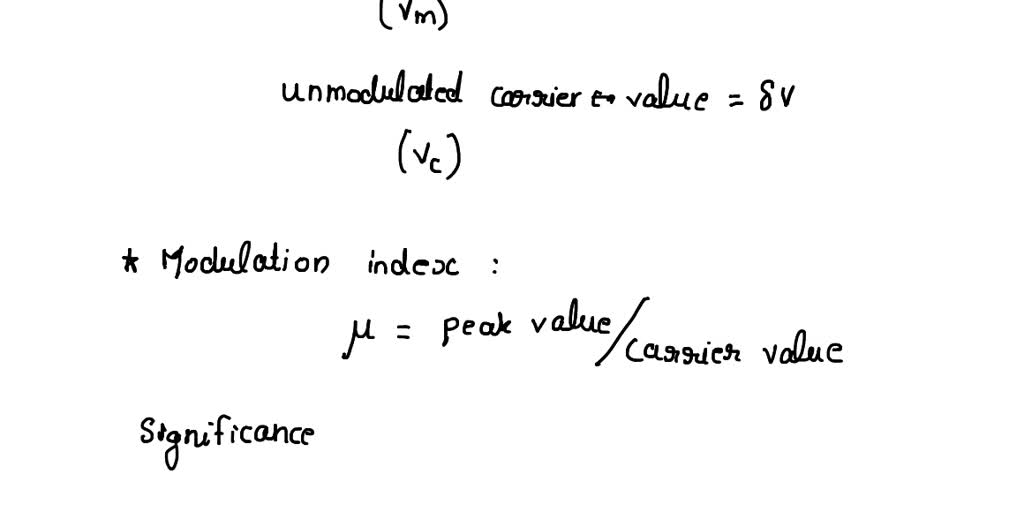 (Vm)
unmodulated carrier value = 8V
(Vc)
* Modulation index :
μ = peak value/carrier value
Significance